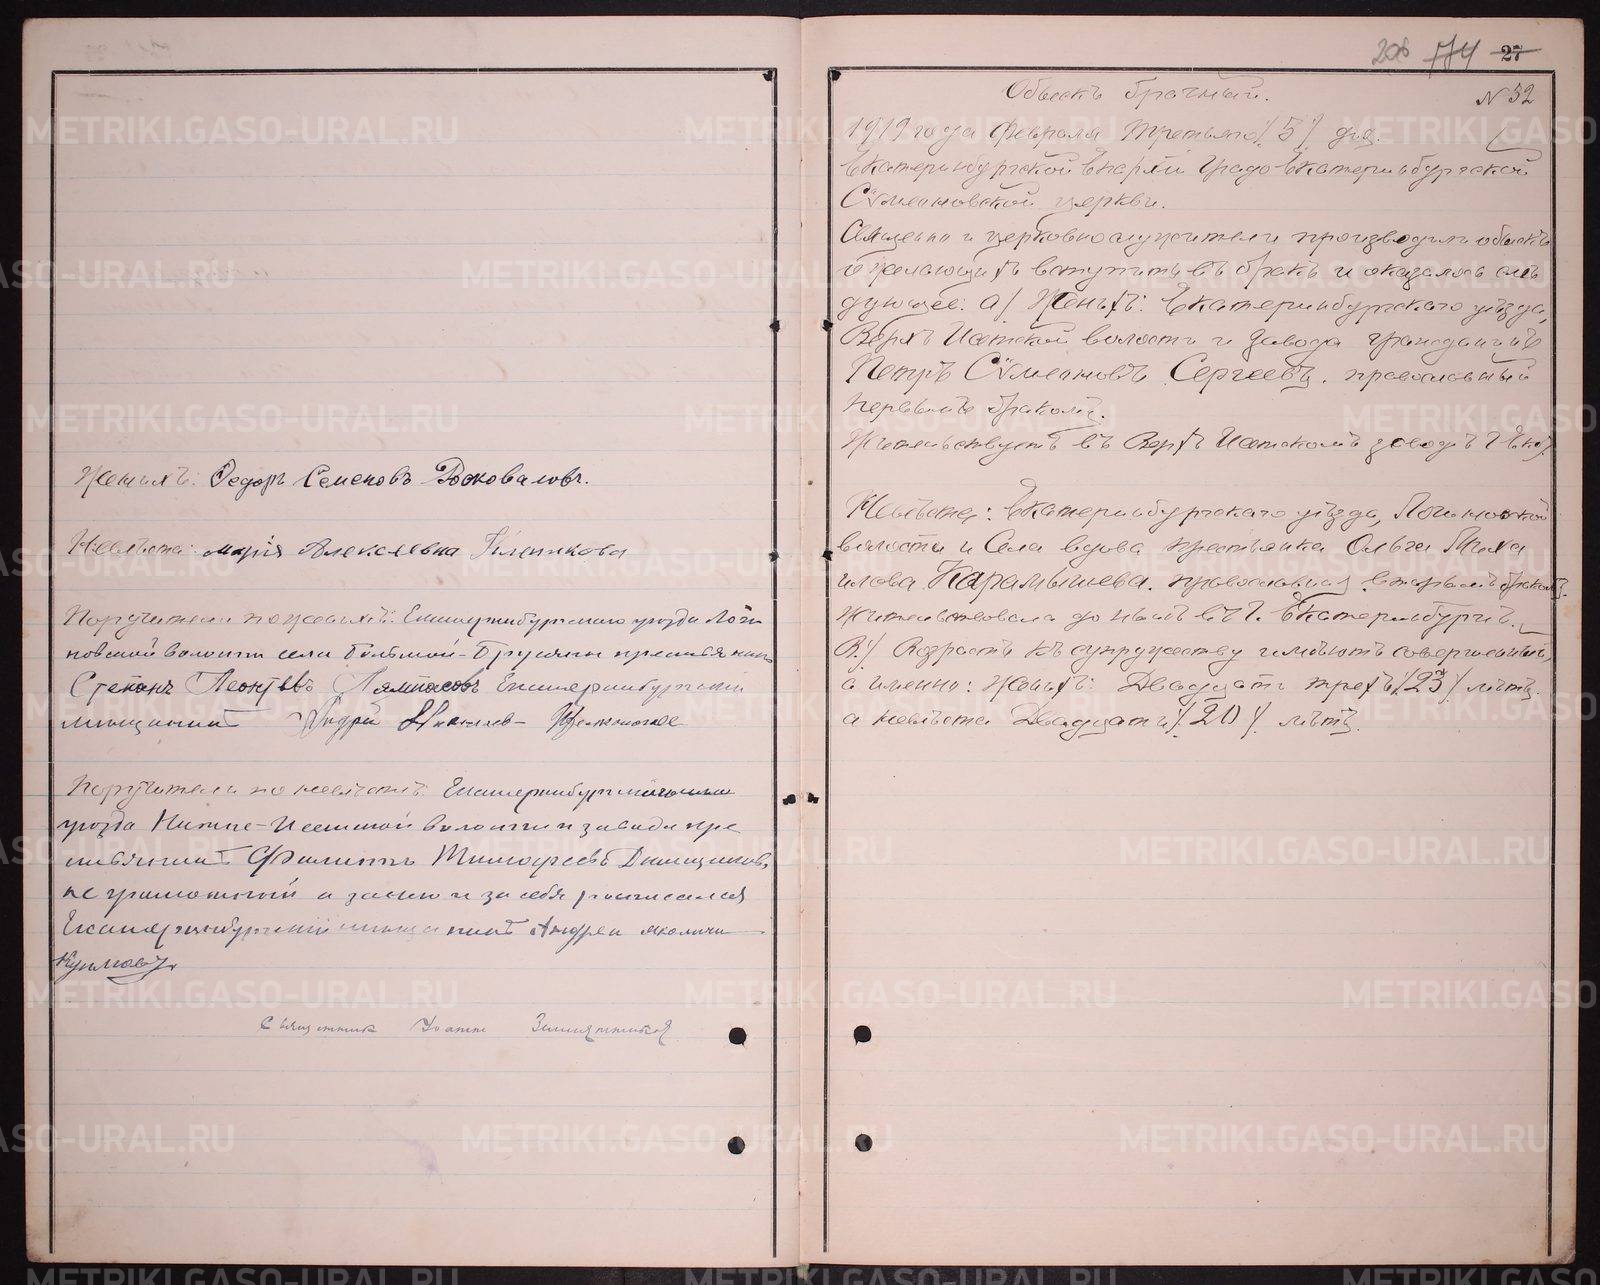 Женихъ: Федоръ Семеновъ Коноваловъ.
Невѣста: Марія Алексѣевна
Поручители по женихѣ: Екатеринбургскаго уѣзда Логи-
новской волости села Большой-Брусяны крестьянинъ
Степанъ Леонтьевъ Екатеринбургскій
мѣщанинъ Андрей
Поручители по невѣстѣ: Екатеринбургскаго
уѣзда Нижне-Исетской волости и завода кре
стьянинъ Филиппъ Тимофеевъ
не грамотной а за него и за себя росписался
Екатеринбургскій мѣщанинъ Андрей
Священник Иоанн
208 574 27
Обыскъ брачный. N 52
1919 года Февраля третьяго /3/ дня.
Екатеринбургской Епархіи Градо-Екатеринбургской
Сѵмеоновской церкви.
Священно и церковнослужители производили обыскъ
о желающихъ вступить въ бракъ и оказалось слѣ
дующее: а/ Женихъ: Екатеринбургскаго уѣзда,
Верхъ Исетской волости и завода гражданинъ
Петръ Сѵмеоновъ Сергеевъ. православный
первымъ бракомъ.
Жительствуетъ въ Верхъ Исетскомъ заводѣ
Невѣста: Екатеринбургскаго уѣзда, Логиновской
волости и села вдова крестьянка Ольга Миха
илова Карамышева. православная вторымъ бракомъ.
Жительствовала до нынѣ въ г. Екатеринбургѣ.
В/ Возрастъ къ супружеству имѣютъ совершенный,
а именно: женихъ: Двадцать трехъ /23/ лѣтъ.
а невѣста Двадцати /20/ лѣтъ.
METRIKI.GASO-URAL.RU